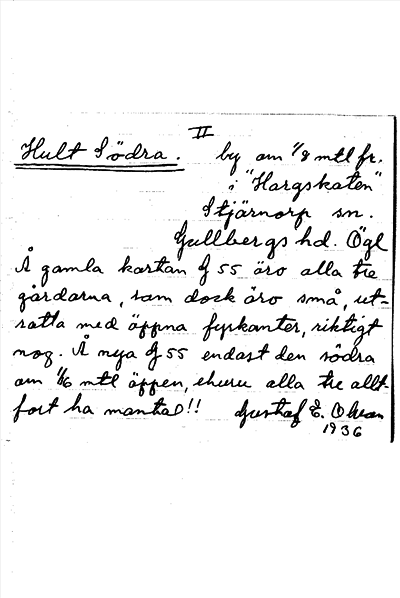 II
Hult Södra. by om 1/8 mtl fr.
i "Hargskaten"
Stjärnorp sn.
Gullbergs hd. Ögl
Å gamla kartan G 55 äro alla tre
gårdarna, som dock äro små, ut-
satta med öppna fyrkanter, riktigt
nog. Å nya G 55 endast den södra
om 1/16 mtl öppen, ehuru alla tre allt
fort ha mantal!! Gustaf E. Olsson
1936